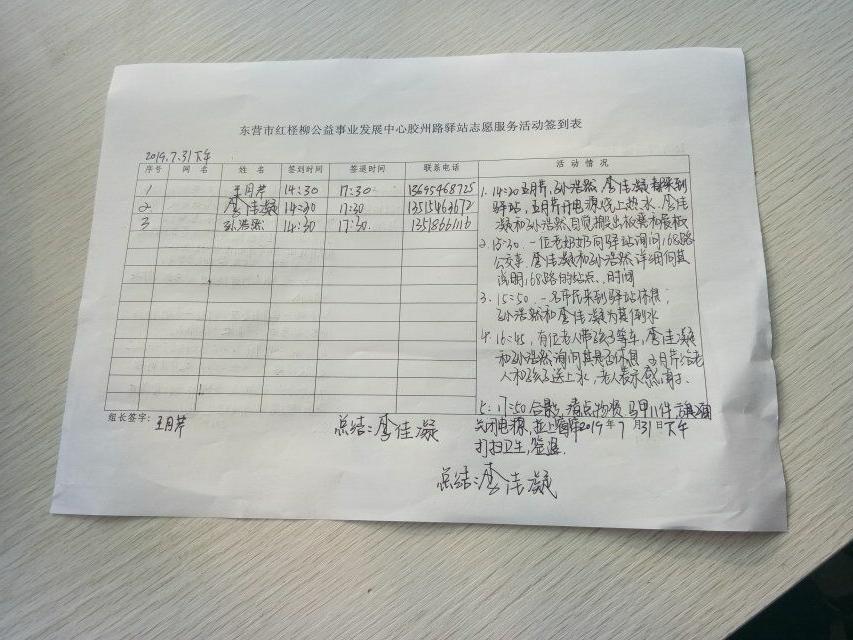 东营市红柽柳公益事业发展中心胶州路驿站志愿服务活动签到表
2019.7.31下午
序号 网 名 姓 名 签到时间 签退时间 联系电话 活 动 情 况
1 王月芹 14:30 17:30 13695468725
2 李佳凝 14:30 17:30
3 孙浩然 14:30 17:30
1. 14:30 王月芹,孙浩然,李佳凝都来到
驿站,王月芹开电源,烧上热水,李佳
凝和孙浩然
2. 15:30. 一位老奶奶向驿站询问168路
公交车,李佳凝和孙浩然详细向其
说明168路的站点、时间
3. 15:50. 一名市民来到驿站休息,
孙浩然和李佳凝为其倒水
4. 16:45, 有位老人带孩子等车,李佳凝
和孙浩然询问其是否休息,王月芹给老
人和孩子送上水,老人表示感谢.
5. 17:50 合影,清点物资 马甲11件
关闭电源, 2019年7月31日下午
打扫卫生,签退.
组长签字: 王月芹
总结:李佳凝
总结:李佳凝